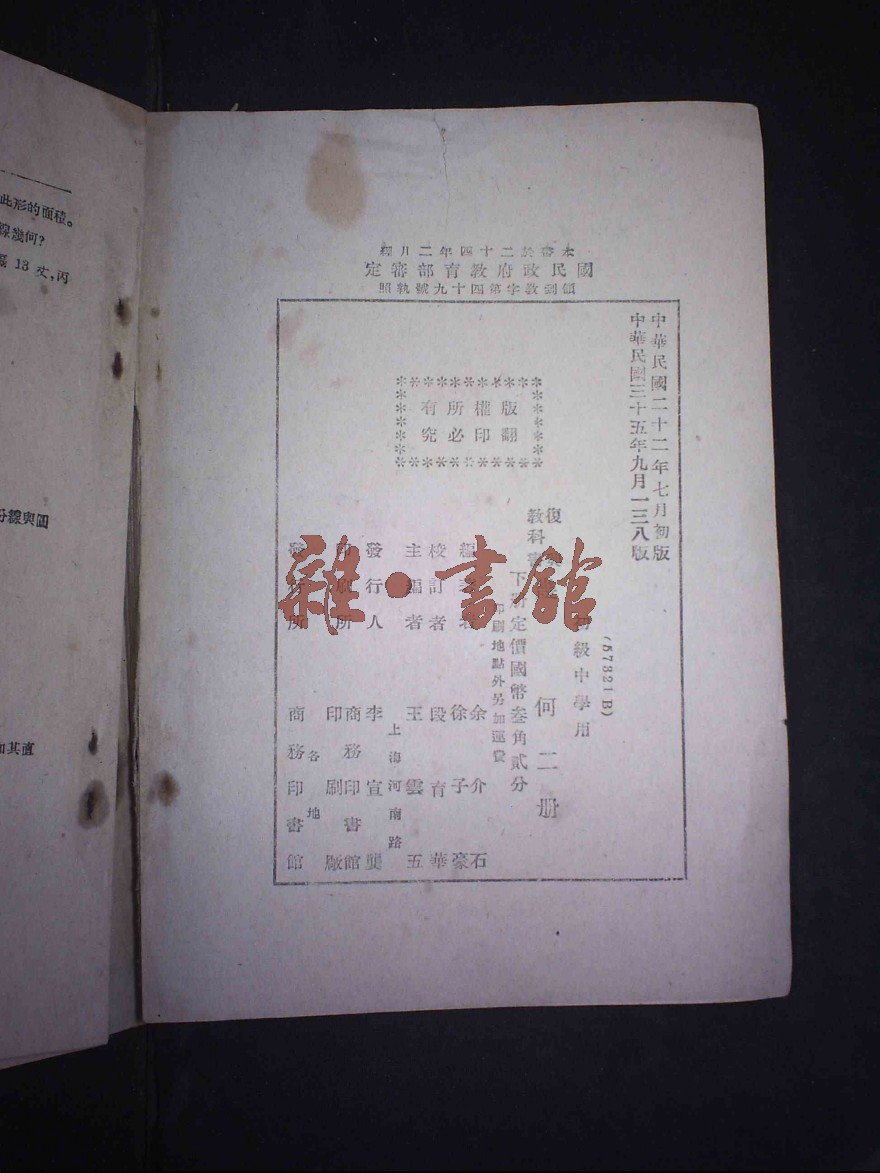 本書於二十四年二月經
國民政府教育部審定
領到教字第四十九號執照
中華民國二十二年七月初版
中華民國三十五年九月一三八版
(57321B)
初級中學用
復
教科書
何 二 册
下册定價國幣叁角貳分
印刷地點外另加運費
版權所有
翻印必究
編著者 余介石
徐子豪
校訂者 段育華
主編者 王雲五
上海河南路
發行人 李宣龔
印刷所 商務印刷廠
印書館
發行所 各地
商務印書館
雜·書館
此形的面積。
線幾何?
13 丈,丙
分線與圓
如其直